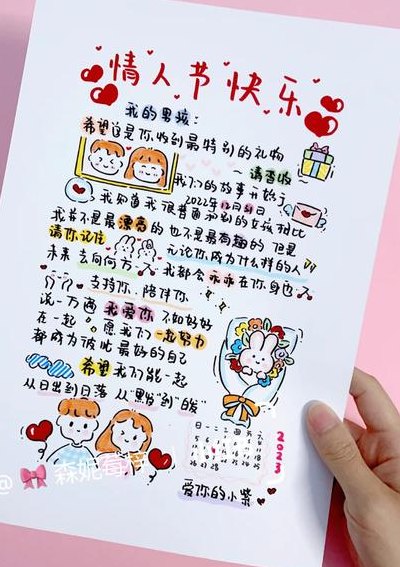 情人节快乐
我的男孩：
希望这是你收到最特别的礼物
~请查收~
我们的故事开始于
2022年12月31日
我知道我很普通和别的女孩相比
我并不是最漂亮的也不是最有趣的 但是
请你记住 无论你成为什么样的人
未来去向何方 我都会永远在你身边
支持你 陪伴你
说一万遍 我爱你 不如好好
在一起 愿我们一起努力
都成为彼此最好的自己
希望我们能一起
从日出到日落 从"黑发"到"白发"
日 一 二 三 四 五 六
2023
爱你的小紫
@ 森妮莓